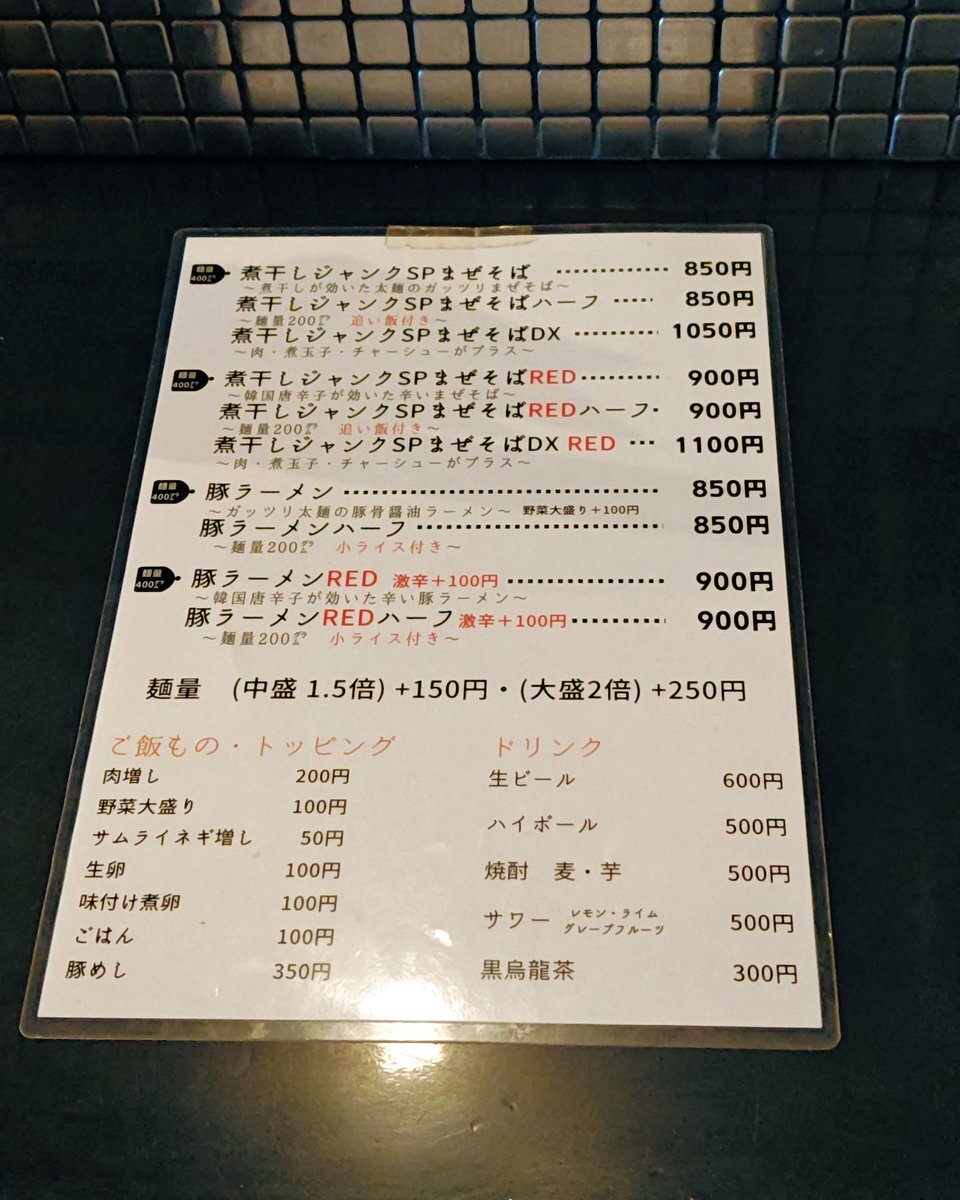 麺量 400㌘ 煮干しジャンクSPまぜそば ………… 850円
～煮干しが効いた太麺のガッツリまぜそば～
煮干しジャンクSPまぜそばハーフ …… 850円
～麺量200㌘ 追い飯付き～
煮干しジャンクSPまぜそばDX ………… 1050円
～肉・煮玉子・チャーシューがプラス～
麺量 400㌘ 煮干しジャンクSPまぜそばRED ………… 900円
～韓国唐辛子が効いた辛いまぜそば～
煮干しジャンクSPまぜそばREDハーフ・ 900円
～麺量200㌘ 追い飯付き～
煮干しジャンクSPまぜそばDX RED … 1100円
～肉・煮玉子・チャーシューがプラス～
麺量 400㌘ 豚ラーメン ………………………… 850円
～ガッツリ太麺の豚骨醤油ラーメン～ 野菜大盛り＋100円
豚ラーメンハーフ ………………………… 850円
～麺量200㌘ 小ライス付き～
麺量 400㌘ 豚ラーメンRED 激辛＋100円 ……………… 900円
～韓国唐辛子が効いた辛い豚ラーメン～
豚ラーメンREDハーフ 激辛＋100円 ………… 900円
～麺量200㌘ 小ライス付き～
麺量 (中盛 1.5倍) +150円・(大盛2倍) +250円
ご飯もの・トッピング
肉増し 200円
野菜大盛り 100円
サムライネギ増し 50円
生卵 100円
味付け煮卵 100円
ごはん 100円
豚めし 350円
ドリンク
生ビール 600円
ハイボール 500円
焼酎 麦・芋 500円
サワー レモン・ライム グレープフルーツ 500円
黒烏龍茶 300円